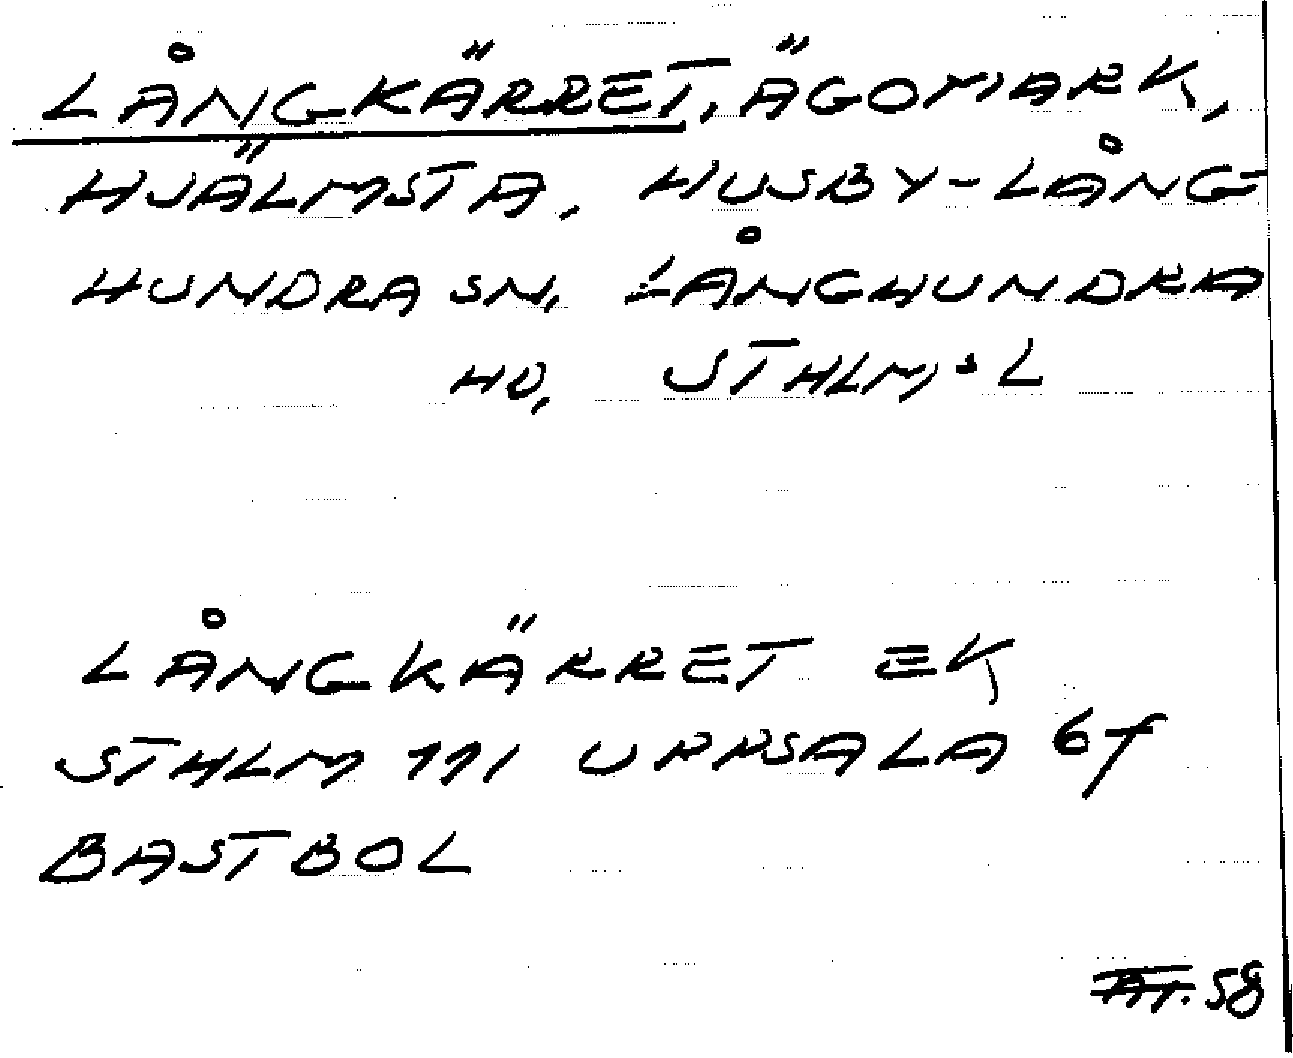 LÅNGKÄRRET, ÄGOMARK,
HJÄLMSTA, HUSBY-LÅNG
HUNDRA SN, LÅNGHUNDRA
HD, STHLM:S L
LÅNGKÄRRET EK
STHLM 111 UPPSALA 67
BASTBOL
58